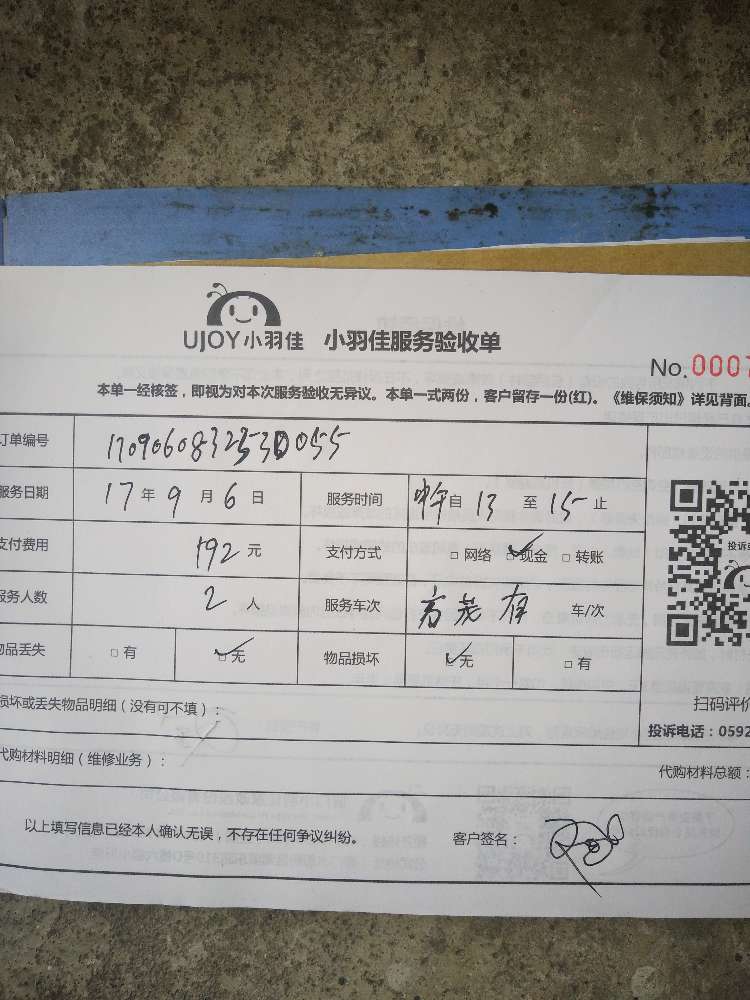 UJOY小羽佳 小羽佳服务验收单
No.0007
本单一经核签，即视为对本次服务验收无异议。本单一式两份，客户留存一份(红)。《维保须知》详见背面。
订单编号 170906083253D055
服务日期 17年9月6日 服务时间 自13至15止
支付费用 192元 支付方式 □网络 □现金 □转账
服务人数 2人 服务车次 车/次
物品丢失 □有 □无 物品损坏 □无 □有
投诉
扫码评价
损坏或丢失物品明细（没有可不填）：
投诉电话：0592
代购材料明细（维修业务）：
代购材料总额：
以上填写信息已经本人确认无误，不存在任何争议纠纷。 客户签名：